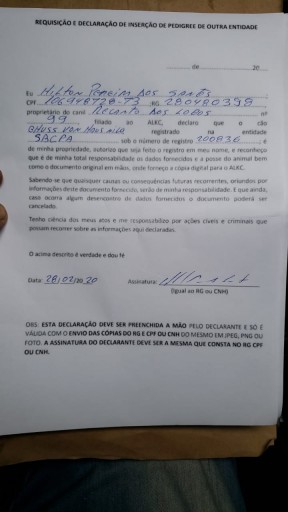 REQUISIÇÃO E DECLARAÇÃO DE INSERÇÃO DE PEDIGREE DE OUTRA ENTIDADE
de 20
Eu Hilton Pereira dos Santos
CPF RG 280480398
proprietário do canil Recanto dos Lobos nº
99, filiado ao ALKC, declaro que o cão
registrado na entidade
SBCPA sob o número de registro 200836, é
de minha propriedade, autorizo que seja feito o registro em meu nome, e reconheço
que é de minha total responsabilidade os dados fornecidos e a posse do animal bem
como o documento original em mãos, onde forneço a cópia digital para o ALKC.
Sabendo se que quaisquer causas ou consequências futuras recorrentes, oriundos por
informações deste documento fornecido, serão de minha responsabilidade. E que ainda,
caso ocorra algum desencontro de dados fornecidos o documento poderá ser
cancelado.
Tenho ciência dos meus atos e me responsabilizo por ações cíveis e criminais que
possam recorrer sobre as informações aqui declaradas.
O acima descrito é verdade e dou fé
Data: 28/02/2020 Assinatura:
(Igual ao RG ou CNH)
OBS. ESTA DECLARAÇÃO DEVE SER PREENCHIDA A MÃO PELO DECLARANTE E SÓ É
VÁLIDA COM O ENVIO DAS CÓPIAS DO RG E CPF OU CNH DO MESMO EM JPEG, PNG OU
FOTO. A ASSINATURA DO DECLARANTE DEVE SER A MESMA QUE CONSTA NO RG CPF
OU CNH.